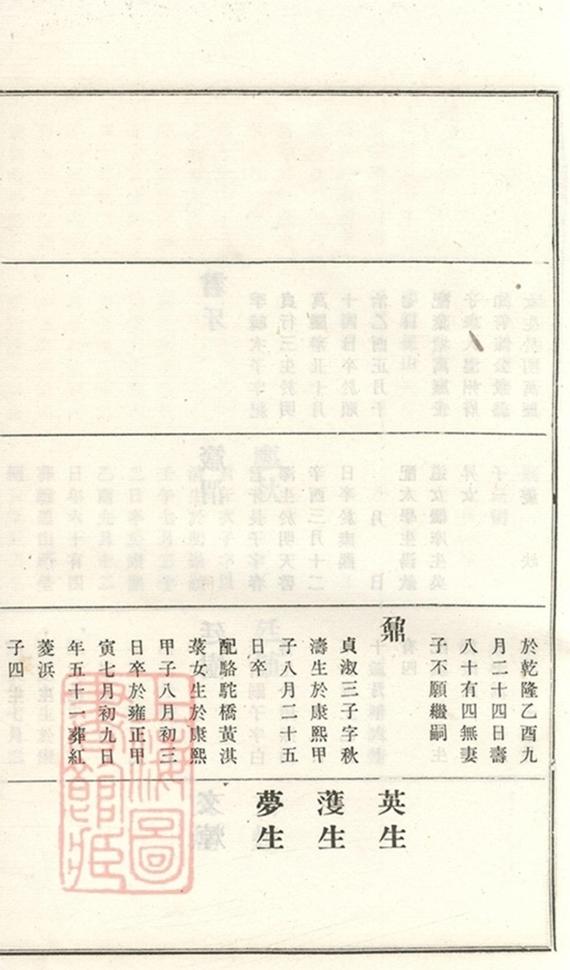 於乾隆乙酉九
月二十四日壽
八十有四無妻
子不願繼嗣
鼐
貞淑三子字秋
濤生於康熙甲
子八月二十五
日卒
配駱駝橋黃淇
蓘女生於康熙
甲子八月初三
日卒於雍正甲
寅七月初九日
年五十一葬紅
菱浜
子四
英生
蒦生
夢生
上海圖
書館藏